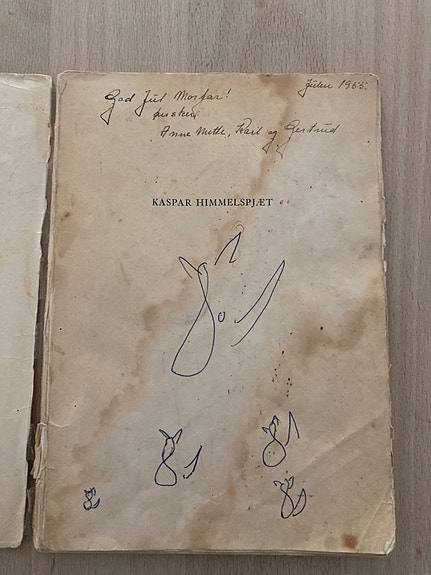 God Jul Morfar!
Julen 1955.
ønsker
Anne Mette, Karl og Gertrud
KASPAR HIMMELSPJÆT